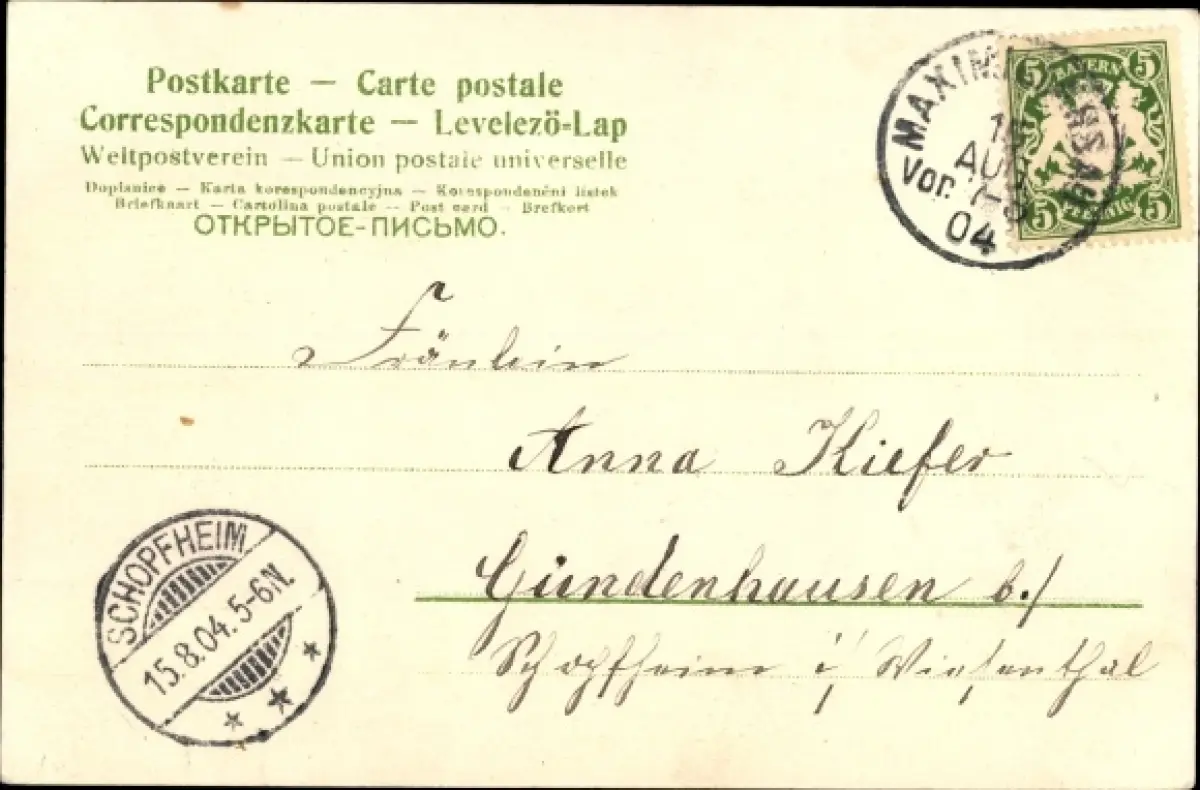 Postkarte — Carte postale
Correspondenzkarte — Levelező-Lap
Weltpostverein — Union postale universelle
Dopisnice — Karta korespondencyjna — Korespondenční lístek
Briefkaart — Cartolina postale — Post card — Brefkort
ОТКРЫТОЕ-ПИСЬМО.
5 BAYERN 5
AUG
Vor. 7-8
04
5 PFENNIG 5
Fräulein
Anna Kiefer
Gündenhausen b./
Schopfheim i/ Wiesenthal
SCHOPFHEIM
15.8.04.5-6N.